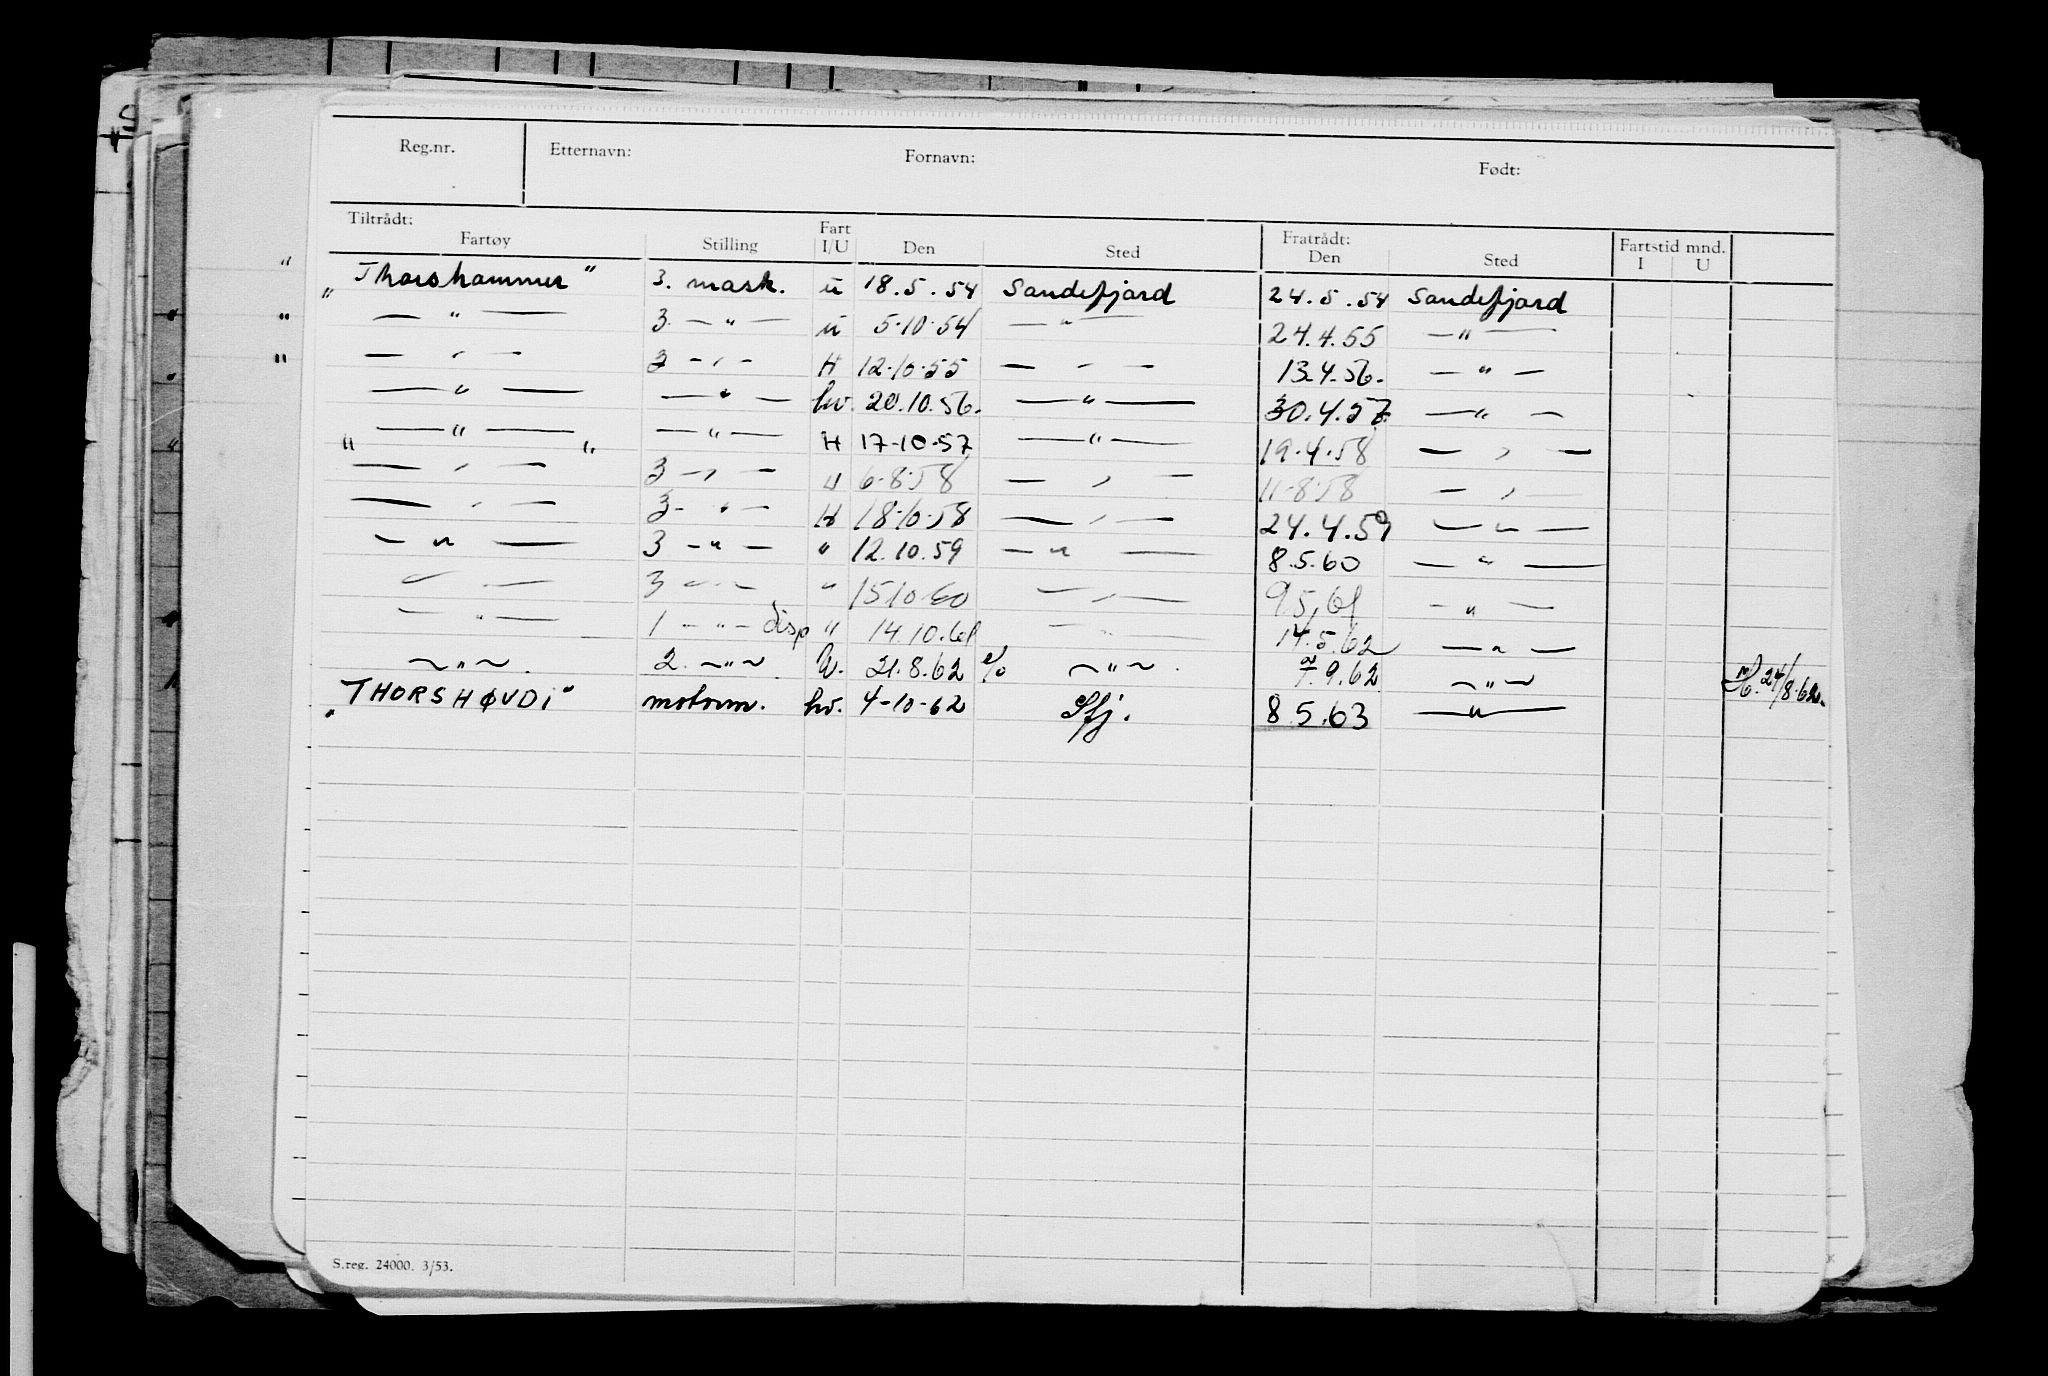 Reg.nr. Etternavn: Fornavn: Født:
Tiltrådt: Fartøy Stilling Fart I/U Den Sted Fratrådt: Den Sted Fartstid mnd. I U
"Thorshammer" 3. mask. u 18.5.54 Sandefjord 24.5.54 Sandefjord
— " — 3. — " — u 5.10.54 — " — 24.4.55 — " —
— " — 3 — " — H 12.10.55 — " — 13.4.56. — " —
— " — — " — hv. 20.10.56. — " — 30.4.57. — " —
" — " — " — " — H 17-10-57 — " — 19.4.58 — " —
— " — 3 — " — U 6-8-58 — " — 11-8-58 — " —
— " — 3 — " — H 18-10-58 — " — 24.4.59 — " —
— " — 3 — " — " 12.10.59 — " — 8.5.60 — " —
— " — 3 — " — " 15.10.60 — " — 9.5.61 — " —
— " — 1 — " — disp " 14.10.61 — " — 14.5.62 — " —
— " — 2. — " — 21.8.62 — " — 7.9.62 — " — 24/8.62.
"THORSHØVDI" motorm. hv. 4-10-62 Sfj. 8.5.63 — " —
S.reg. 24000. 3/53.